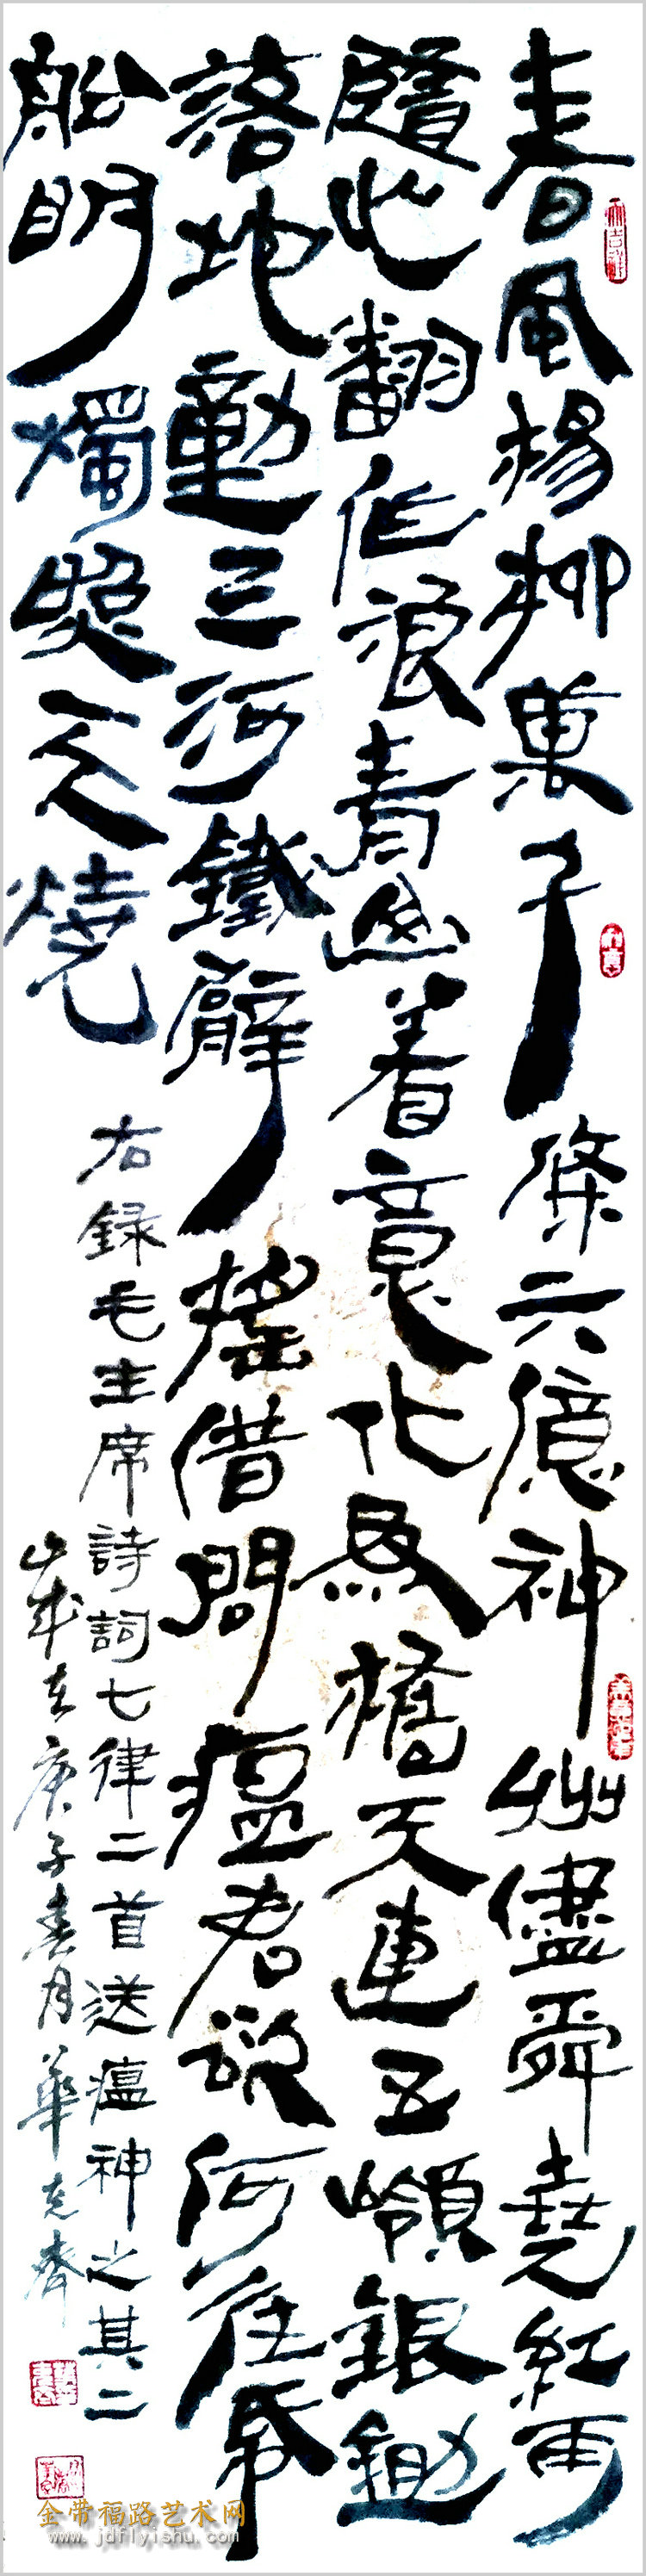 春風楊柳萬千條六億神州儘舜堯紅雨
隨心翻作浪青山着意化為橋天連五嶺銀鋤
落地動三河鐵臂搖借問瘟君欲何往帋
船明燭照天燒
右錄毛主席詩詞七律二首送瘟神之其二
歲在庚子春月華克齊
金带福路艺术网
www.jdflyishu.com